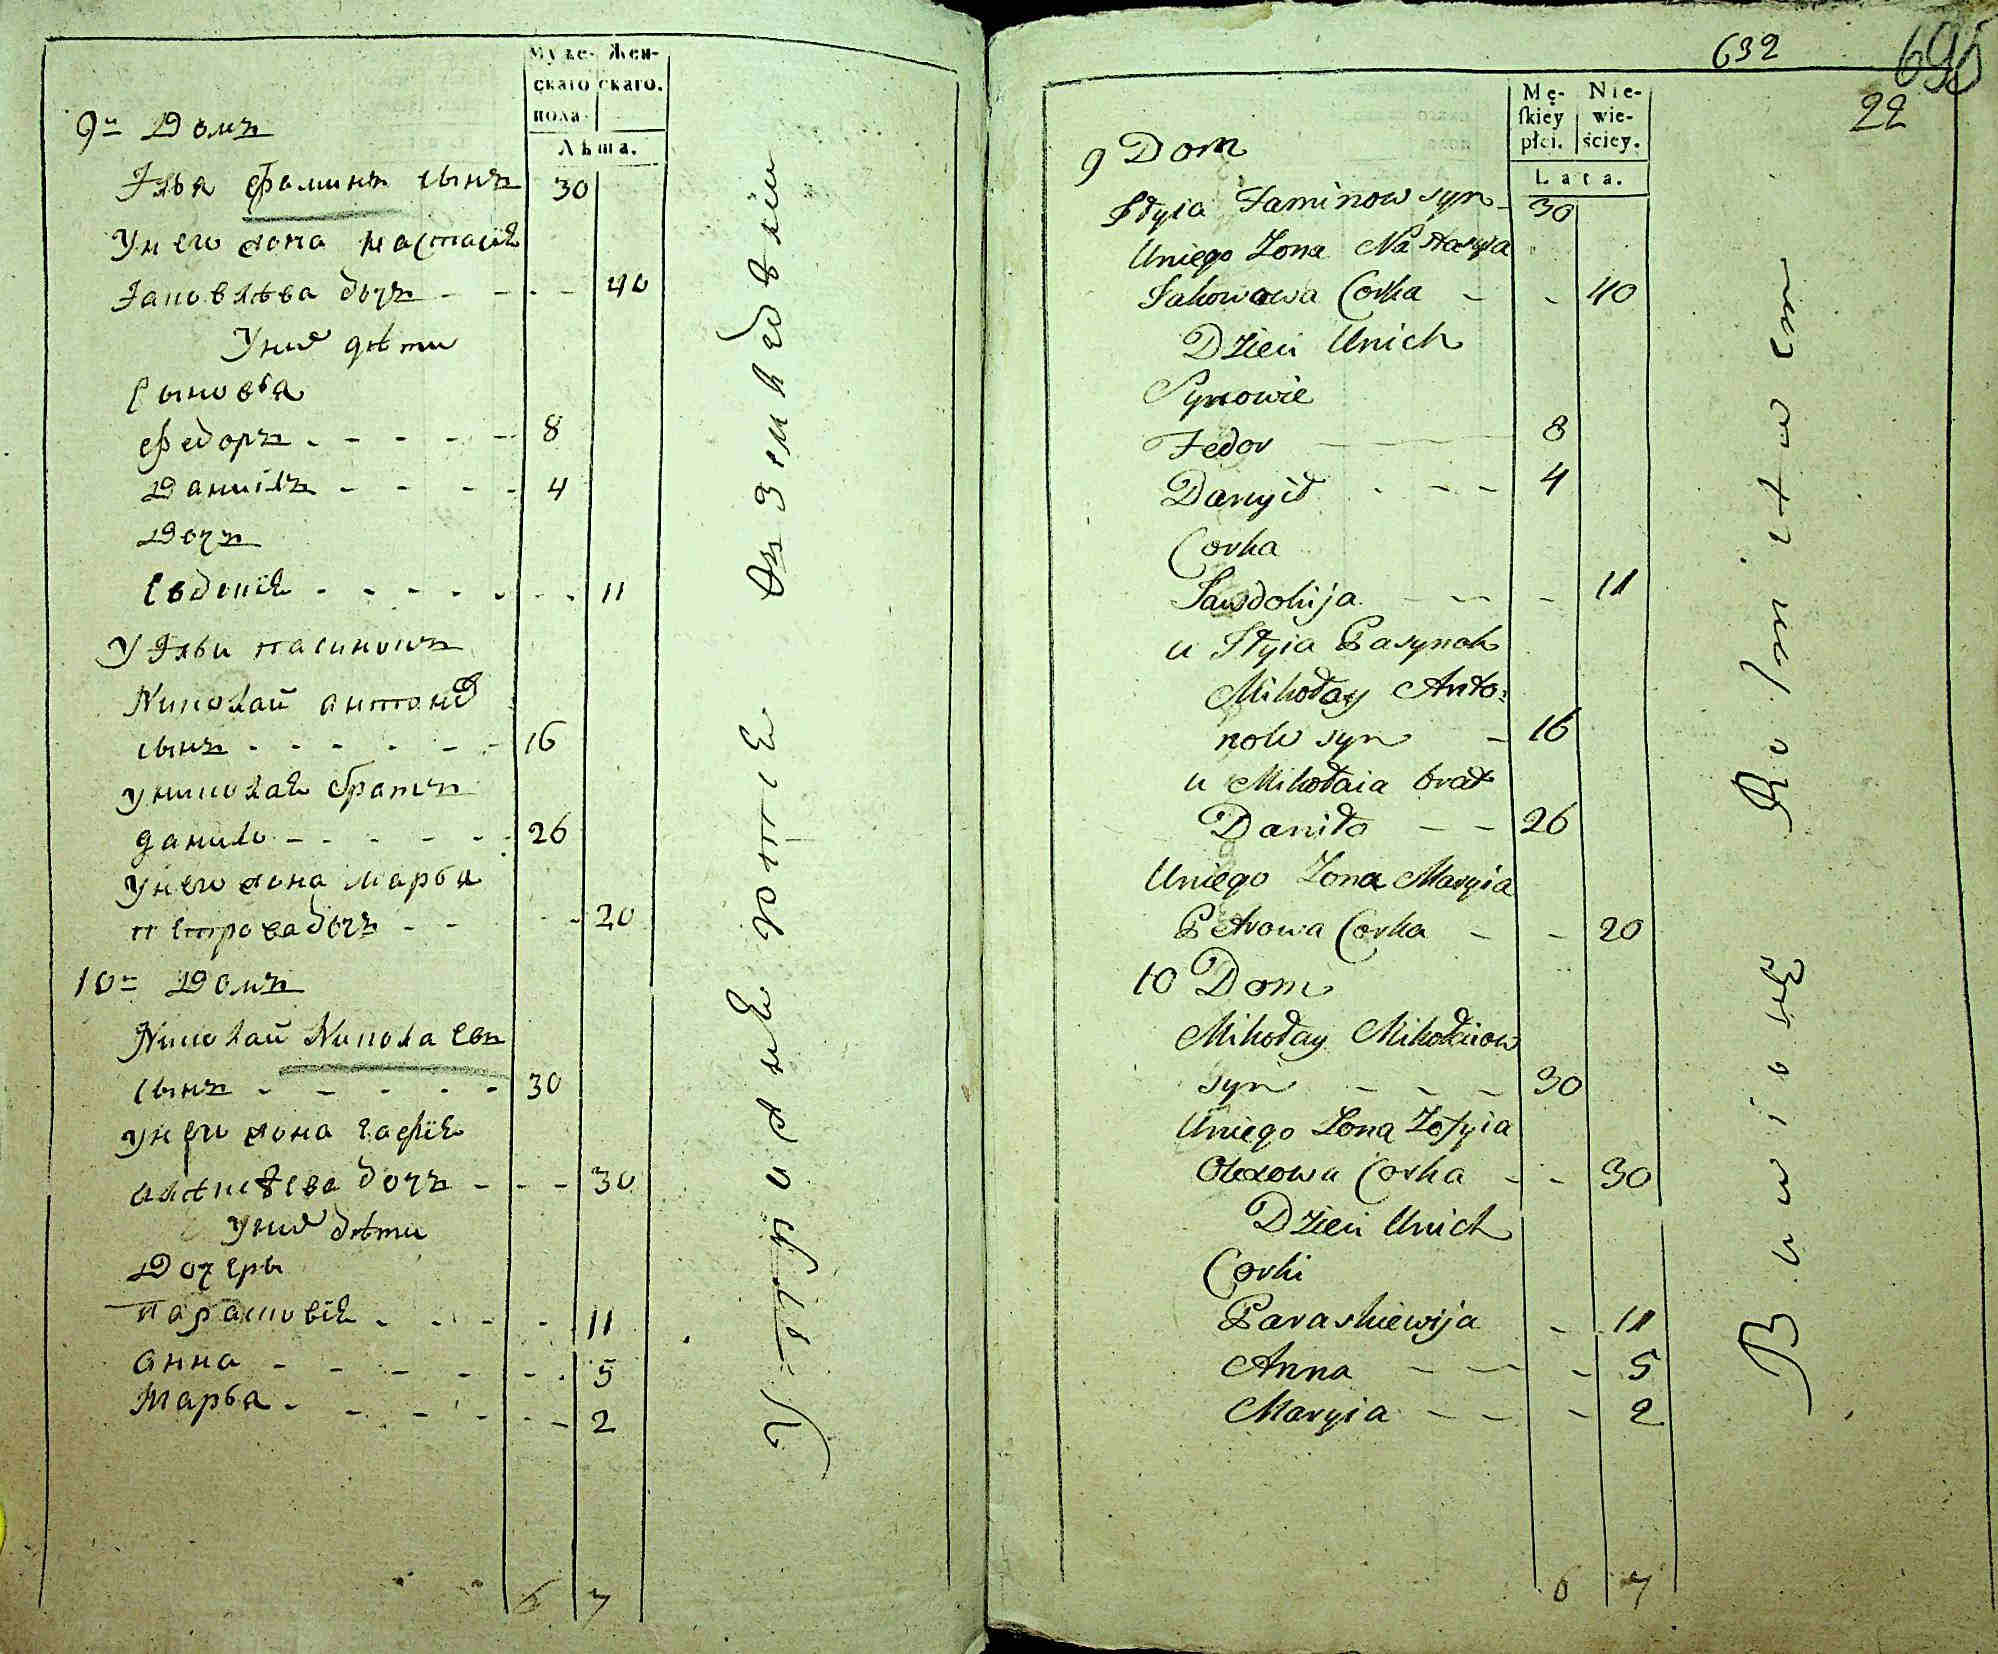 Муже-
скаго
пола.
Жен-
скаго.
Лѣта.
9й Домъ
Илья Фаминъ сынъ 30
У него жона Настасія
Яковлѣва дочъ - - - - 40
У них дѣти
Сыновья
Федоръ - - - - - 8
Даниілъ - - - - 4
Дочъ
Евдокія - - - - - - - 11
У Ильи пасинокъ
Николай Антонов
сынъ - - - - - - 16
У Николая братъ
Данило - - - - - - 26
У него жона Марья
Петрова дочъ - - - - 20
10й Домъ
Николай Николаевъ
сынъ - - - - - - 30
У него жона Гафія
Алѣксѣева дочъ - - - 30
У них дѣти
Дочеры
Парасковія - - - - - 11
Анна - - - - - - - 5
Марья - - - - - - - 2
6 7
632
22
Mę-
skiey
płci.
Nie-
wie-
ściey.
Lata.
9 Dom
Iłyia Faminow syn - 30
Uniego Zona Nastasyia
Jakowowa Corka - - 40
Dzieci Unich
Synowie
Fedor 8
Danyił - - - 4
Corka
Jawdokija - - - 11
u Iłyia Pasynok
Mikołay Anto:
now syn - 16
u Mikołaia brat
Daniło - - 26
Uniego Zona Maryia
Petrowa Corka - - 20
10 Dom
Mikołay Mikołaiow
syn - - - 30
Uniego Zona Zofyia
Olexowa Corka - - 30
Dzieci Unich
Corki
Paraskiewija - 11
Anna - - - 5
Maryia - - - 2
6 7